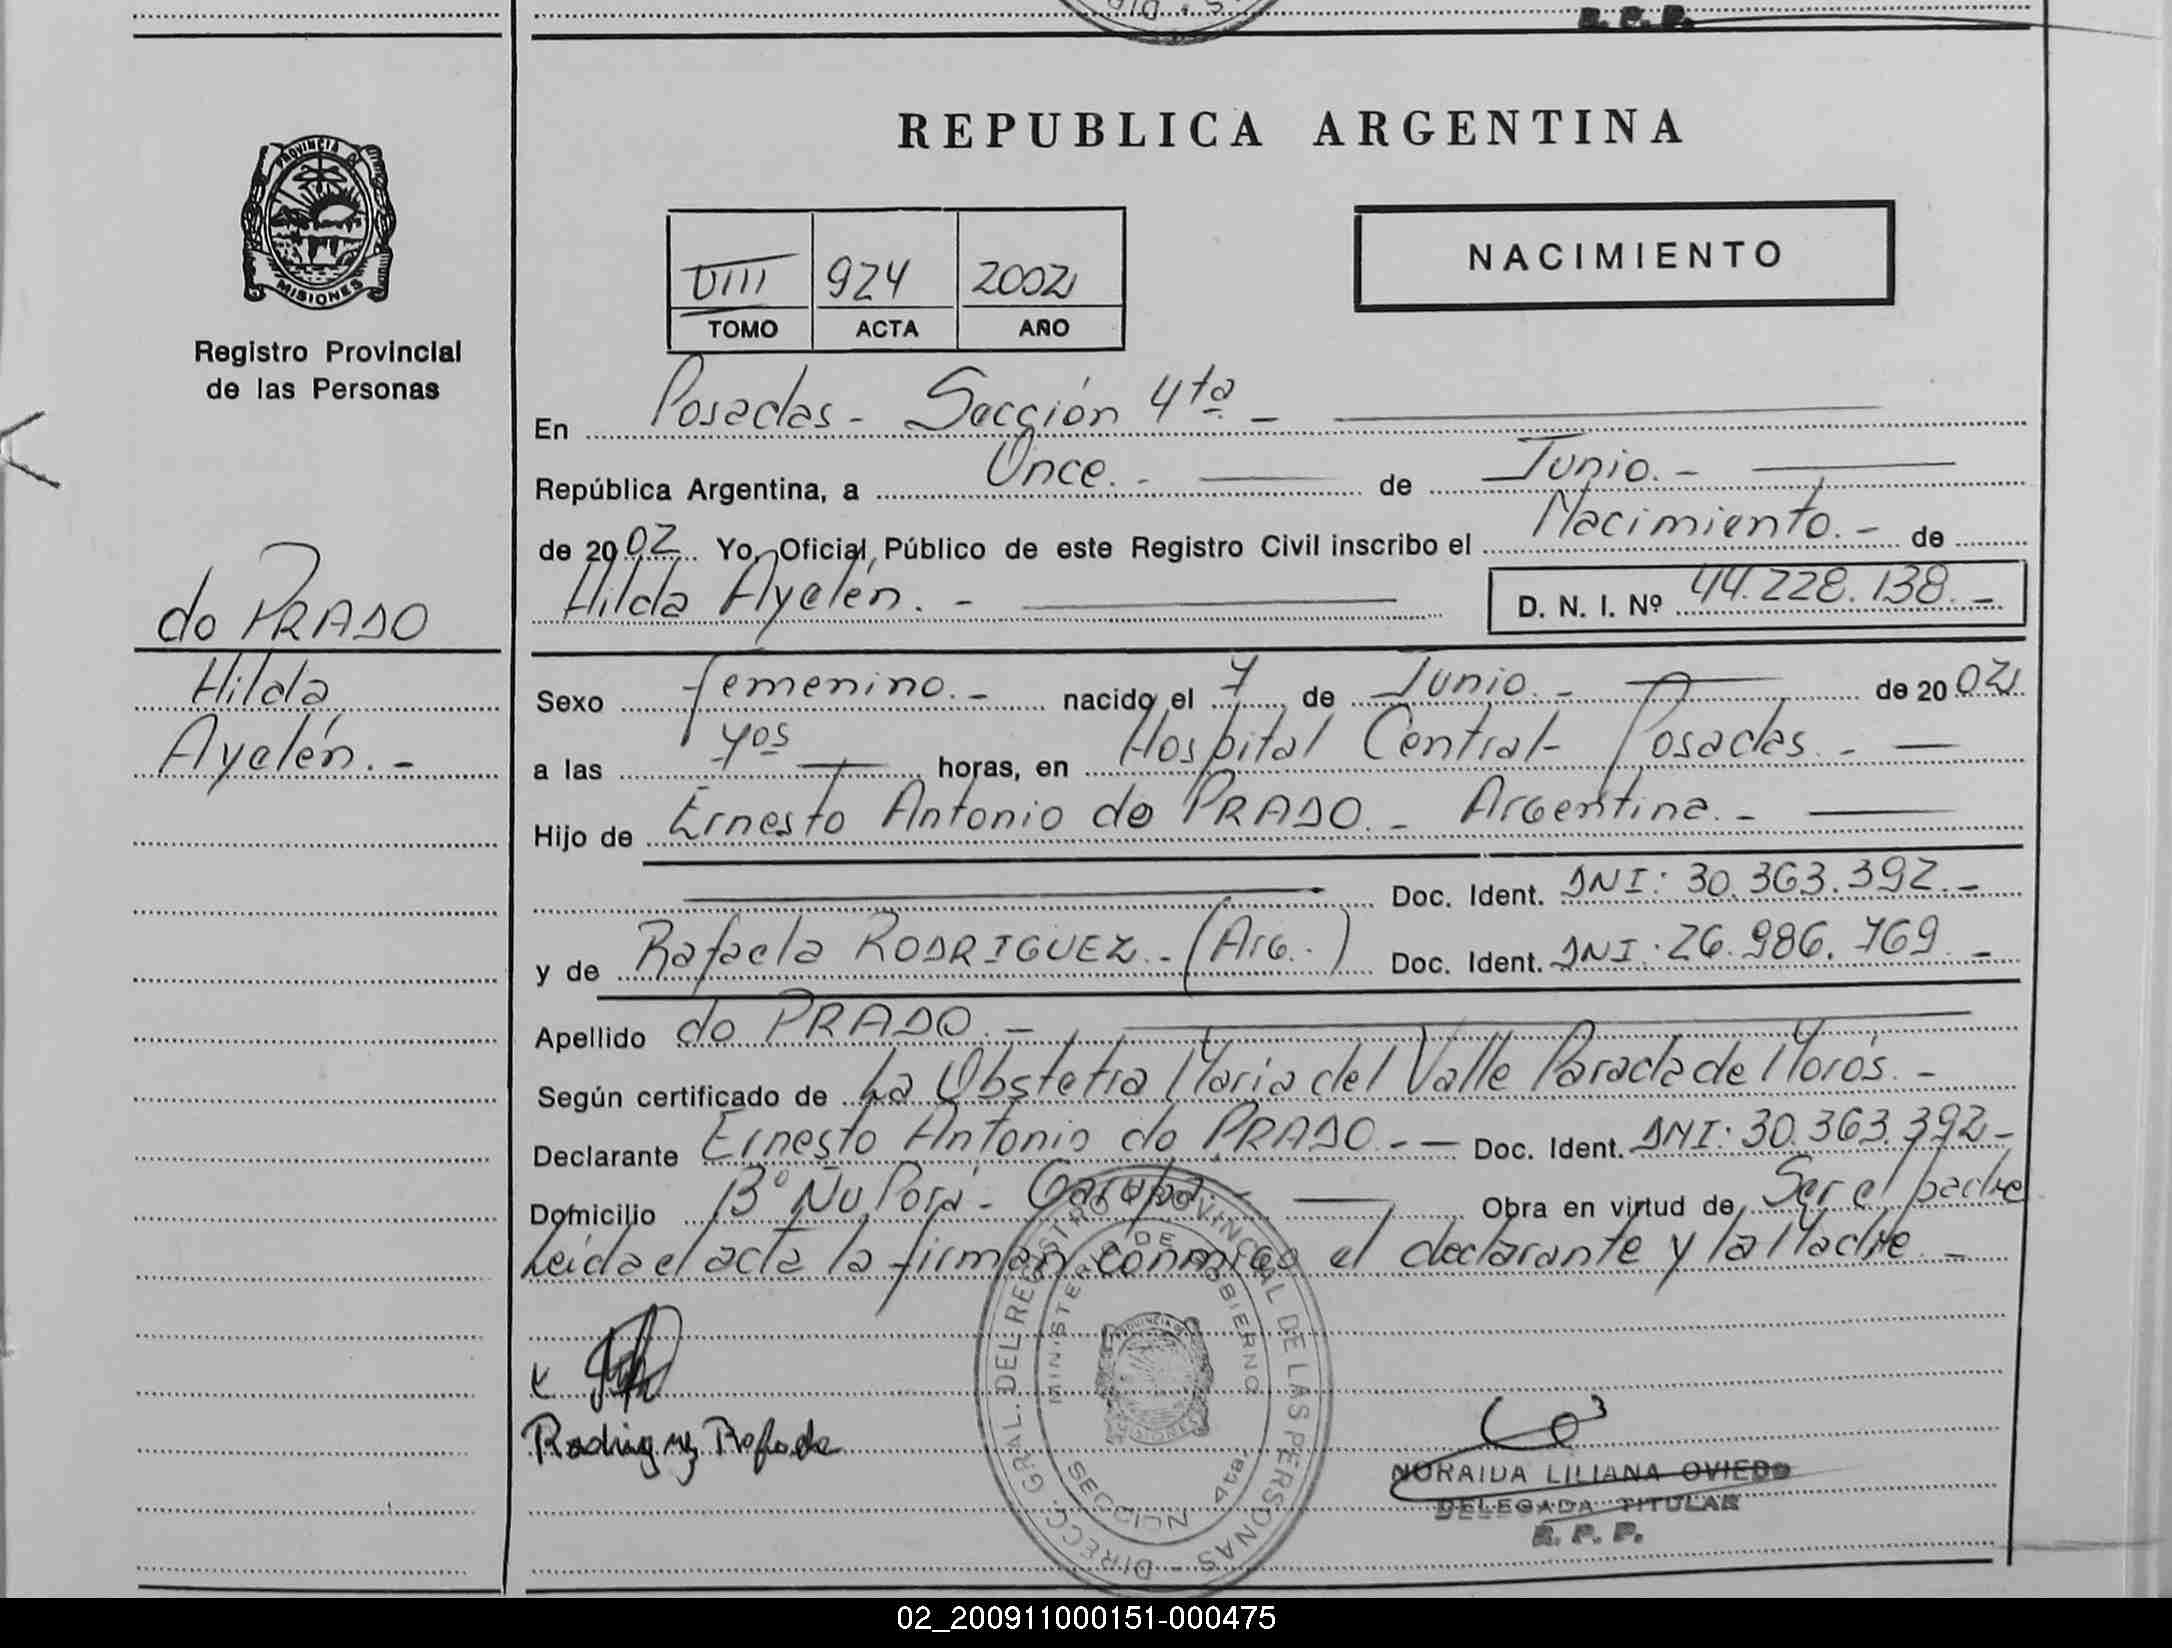 R. P. P.
REPUBLICA ARGENTINA
PROVINCIA DE
MISIONES
Registro Provincial
de las Personas
VIII 924 2002
TOMO ACTA AÑO
NACIMIENTO
En Posadas - Sección 4ta -
República Argentina, a Once. - de Junio. -
de 2002 Yo, Oficial Público de este Registro Civil inscribo el Nacimiento. - de
Hilda Ayelén. - D. N. I. Nº 44.228.138. -
do PRADO
Hilda
Ayelén. -
Sexo femenino. - nacido el 7 de Junio. - de 2002
a las 7os horas, en Hospital Central - Posadas. -
Hijo de Ernesto Antonio do PRADO. - Argentina. -
Doc. Ident. DNI: 30.363.392. -
y de Rafaela RODRIGUEZ. - (Arg.) Doc. Ident. DNI: 26.986.769. -
Apellido do PRADO. -
Según certificado de La Obstetra María del Valle Parada de Morós. -
Declarante Ernesto Antonio do PRADO. - Doc. Ident. DNI: 30.363.392 -
Domicilio Bº Ñu Porá - Garupá. - Obra en virtud de Ser el padre
Leída el acta la firman conmigo el declarante y la Madre. -
Rodriguez Rafaela
DIRECC. GRAL. DEL REGISTRO PROVINCIAL DE LAS PERSONAS
MINISTERIO DE GOBIERNO
SECCION 4ta.
NORAIDA LILIANA OVIEDO
DELEGADA TITULAR
R. P. P.
02_200911000151-000475